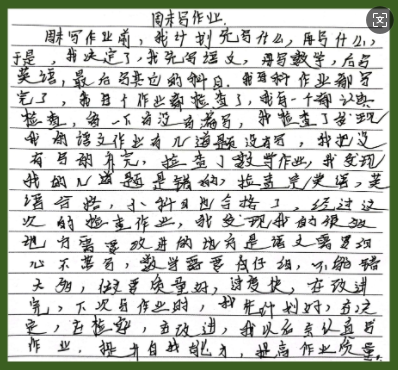 周末写作业.
周末写作业前，我计划先写什么，再写什么，
于是，我决定了，我先写语文，再写数学，后写
英语，最后写其它的科目。我各科作业都写
完了，我每个作业都检查了，我有一个都认真
检查，看一下有没有漏写，我检查了发现
我的语文作业有几道题没有写，我把没
有写的补完，检查了数学作业，我发现
我的几道题是错的，检查完英语，英
语合格，小科目也合格了，经过这
次的检查作业，我发现我的很多
地方需要改进的地方是语文需要细
心不漏写，数学需要仔细，不能错
太多，但要质量好，速度快，在改进
完，下次写作业时，我先计划好，在决
定，在检查，在改进，我以后会认真写
作业，提升自我能力，提高作业质量.